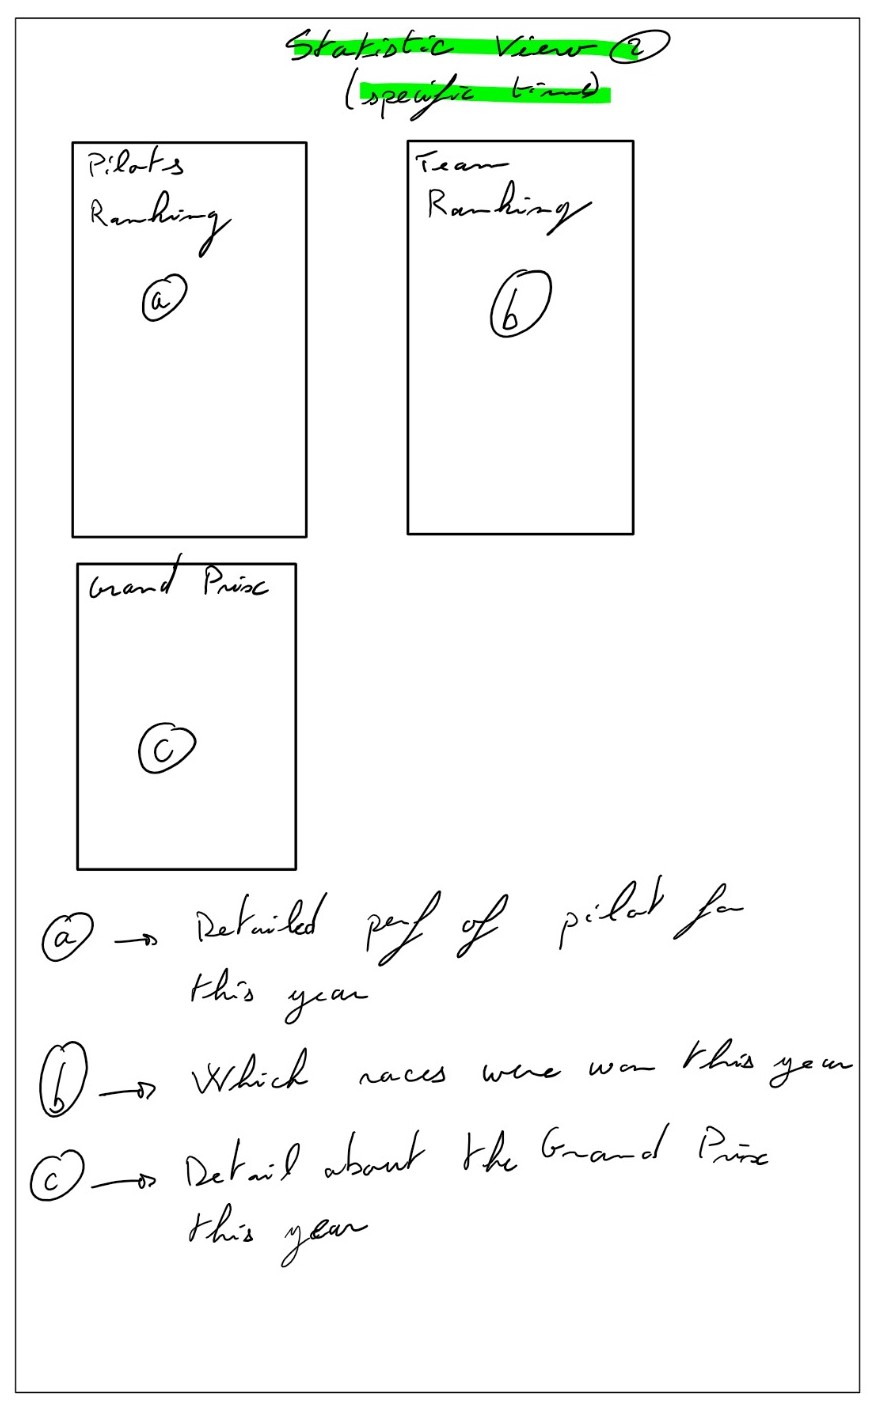 Statistic View 2
(specific time)
Pilots
Ranking
a
Team
Ranking
b
Grand Prix
c
a → Detailed perf of pilot for
this year
b → Which races were won this year
c → Detail about the Grand Prix
this year